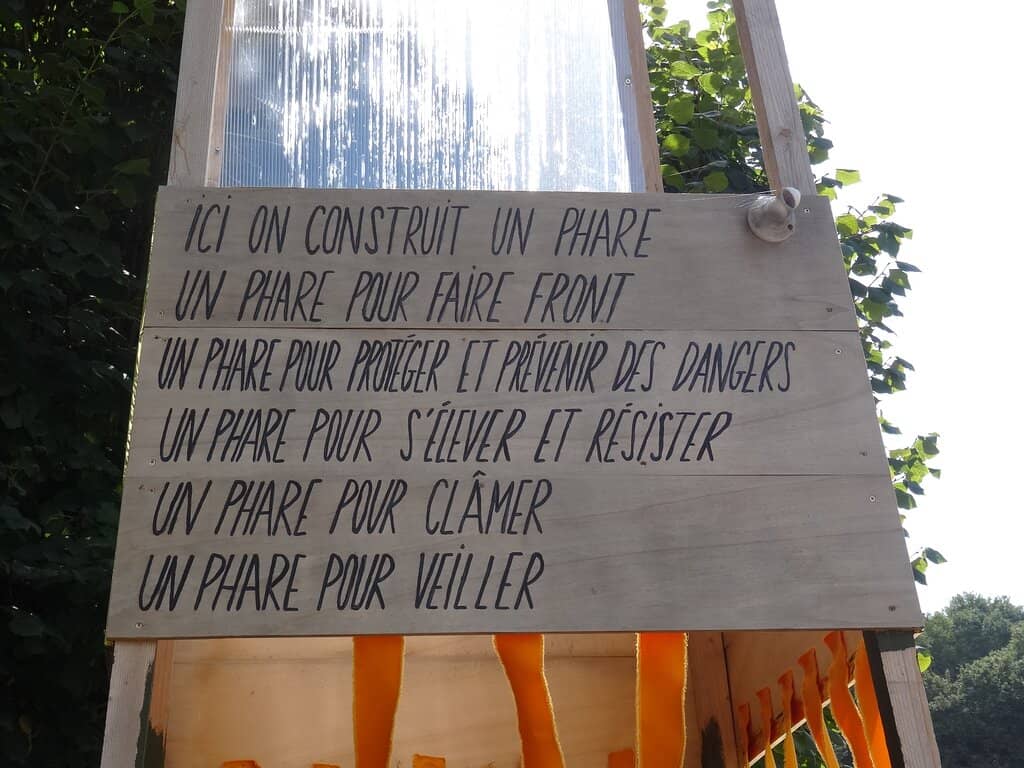 ICI ON CONSTRUIT UN PHARE
UN PHARE POUR FAIRE FRONT
UN PHARE POUR PROTÉGER ET PRÉVENIR DES DANGERS
UN PHARE POUR S'ÉLEVER ET RÉSISTER
UN PHARE POUR CLÂMER
UN PHARE POUR VEILLER